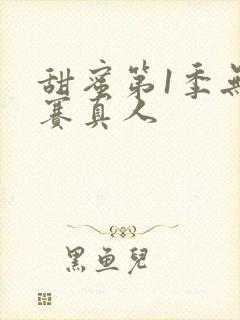 甜蜜第1季無
賽真人
黑鱼兒